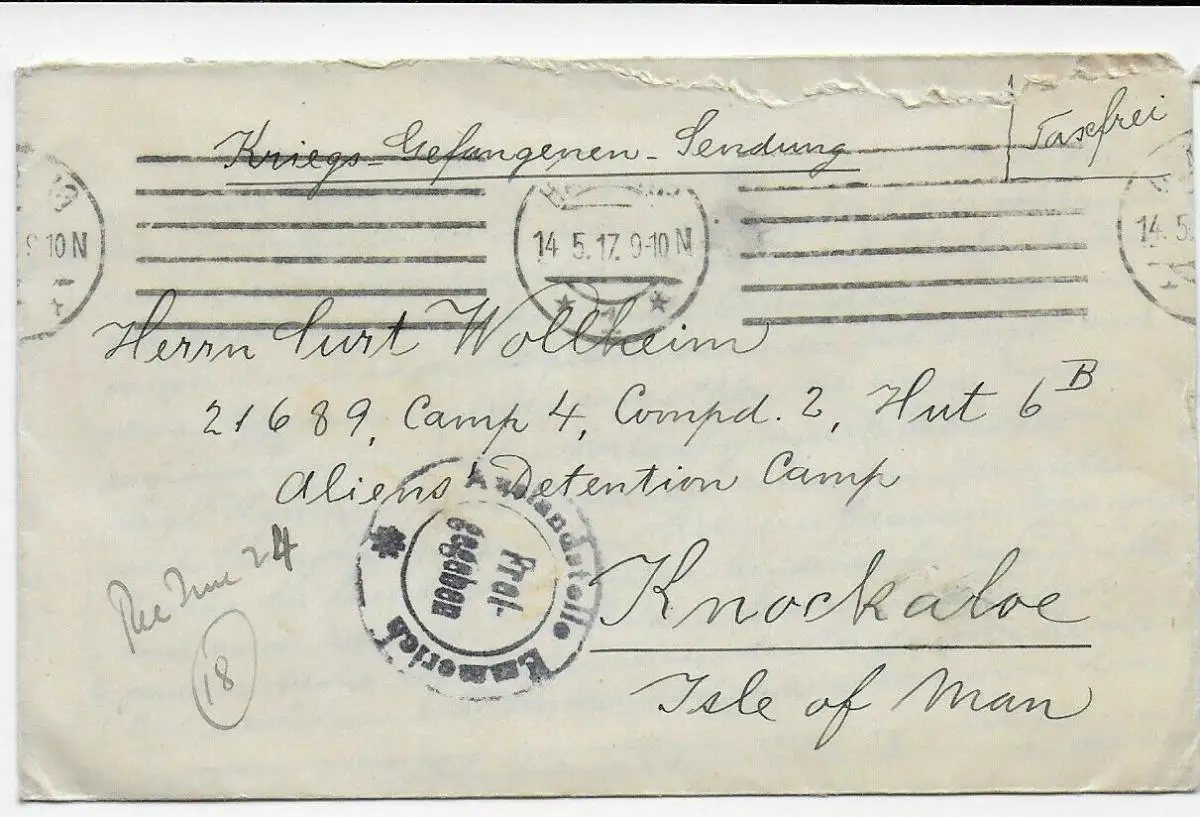 Kriegs-Gefangenen-Sendung
Taxefrei
9-10 N
14.5.17. 9-10 N
1
14.5.
Herrn Curt Wollheim
21689, Camp 4, Compd. 2, Hut 6 B
Aliens' Detention Camp
Knockaloe
Isle of Man
Auslandstelle Emmerich
Frei-
gegeben
Rec June 24
18